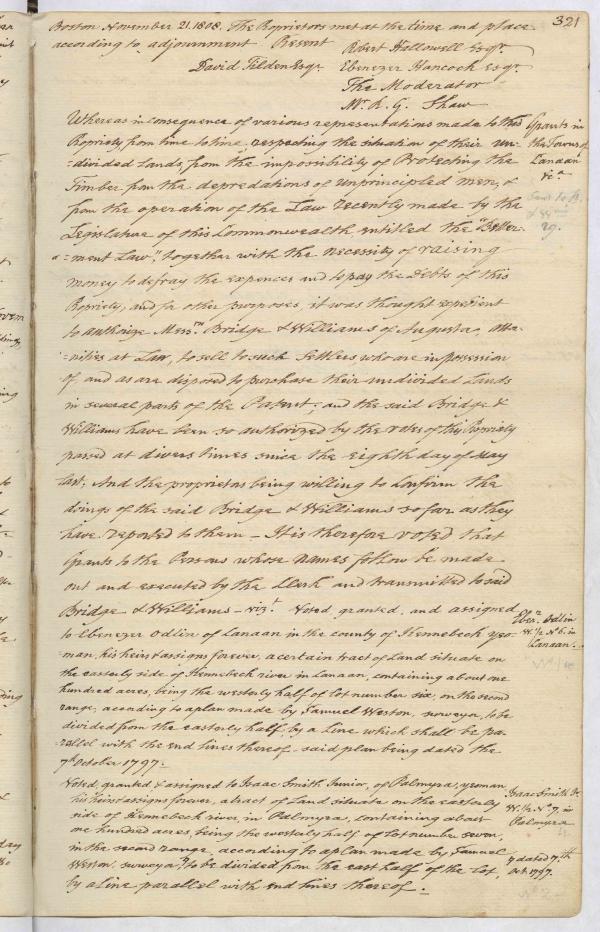 321
Boston November 21. 1808. The Proprietors met at the time and place
according to adjournment Present Robert Hallowell Esqr.
David Tilden Esqr. Ebenezer Hancock Esqr.
The Moderator
Mr. R. G. Shaw
Whereas in consequence of various representations made to this
Propriety, from time to time, respecting the situation of their un-
=divided lands, from the impossibility of Protecting the
Timber from the depredations of unprincipled men, &
from the operation of the Law recently made by the
Legislature of this Commonwealth entitled the "Better-
=ment Law", together with the necessity of raising
money to defray the expences and to pay the Debts of this
Propriety, and for other purposes, it was thought expedient
to authorize Messrs. Bridge & Williams of Augusta, Atto-
=rnies at Law, to sell to such Settlers who are in possession
of, and as are disposed to purchase their undivided Lands
in several parts of the Patent; and the said Bridge &
Williams have been so authorized by the votes of this Propriety
passed at divers times since the eighth day of May
last: And the proprietors being willing to confirm the
doings of the said Bridge & Williams so far as they
have reported to them - It is therefore voted that
Grants to the Persons whose names follow be made
out and executed by the Clerk and transmitted to said
Bridge & Williams - vizt. Voted, granted, and assigned
to Ebenezer Odlin of Canaan in the county of Kennebeck yeo-
man, his heirs & assigns forever, a certain tract of Land situate on
the easterly side of Kennebeck river in Canaan, containing about one
hundred acres, being the westerly half of lot number six, on the second
range, according to a plan made by Samuel Weston, surveyor, to be
divided from the easterly half, by a line which shall be pa-
rallel with the end lines thereof, said plan being dated the
7th October 1797.
Voted, granted, & assigned to Isaac Smith Junior, of Palmyra, yeoman,
his heirs & assigns forever, a tract of Land situate on the easterly
side of Kennebeck river, in Palmyra, containing about
one hundred acres, being the westerly half of Lot number seven,
in the second range, according to a plan made by Samuel
Weston, surveyor, to be divided from the east half of the lot,
by a line parallel with end lines thereof.
Grants in
the Towns of
Canaan
&ca
Eber. Odlin
W. 1/2 No 6. in
Canaan.
Isaac Smith Jr.
W. 1/2 No 7, in
Palmyra
dated 7th
Oct. 1797.